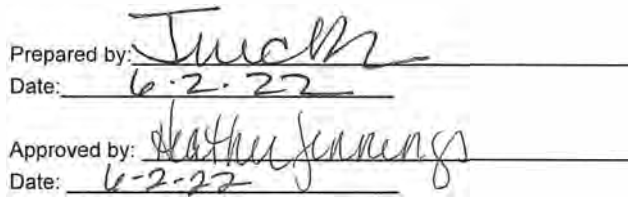 Prepared by:
Date: 6.2.22
Approved by: Heather Jennings
Date: 6-2-22